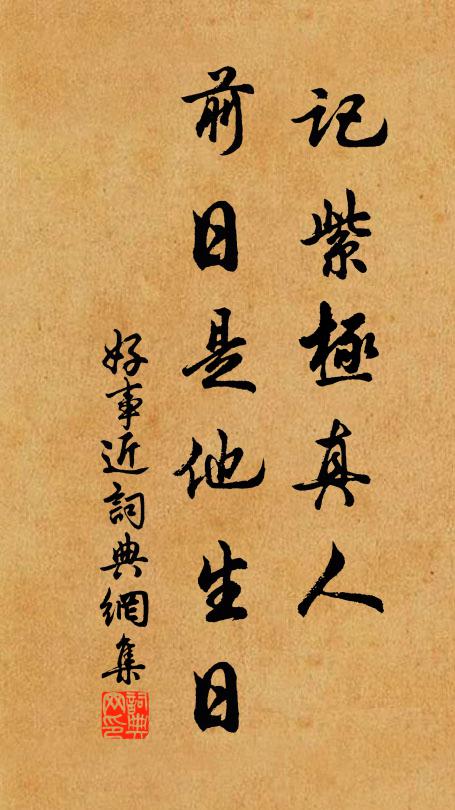 記紫極真人
前日是他生日
好事近詞典網集
詞典
网印